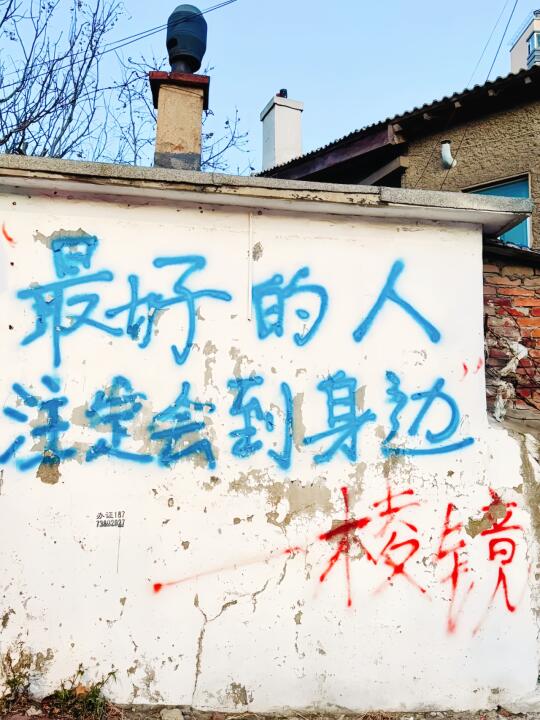 最好的人
注定会到身边
办证187
73892927
—棱镜